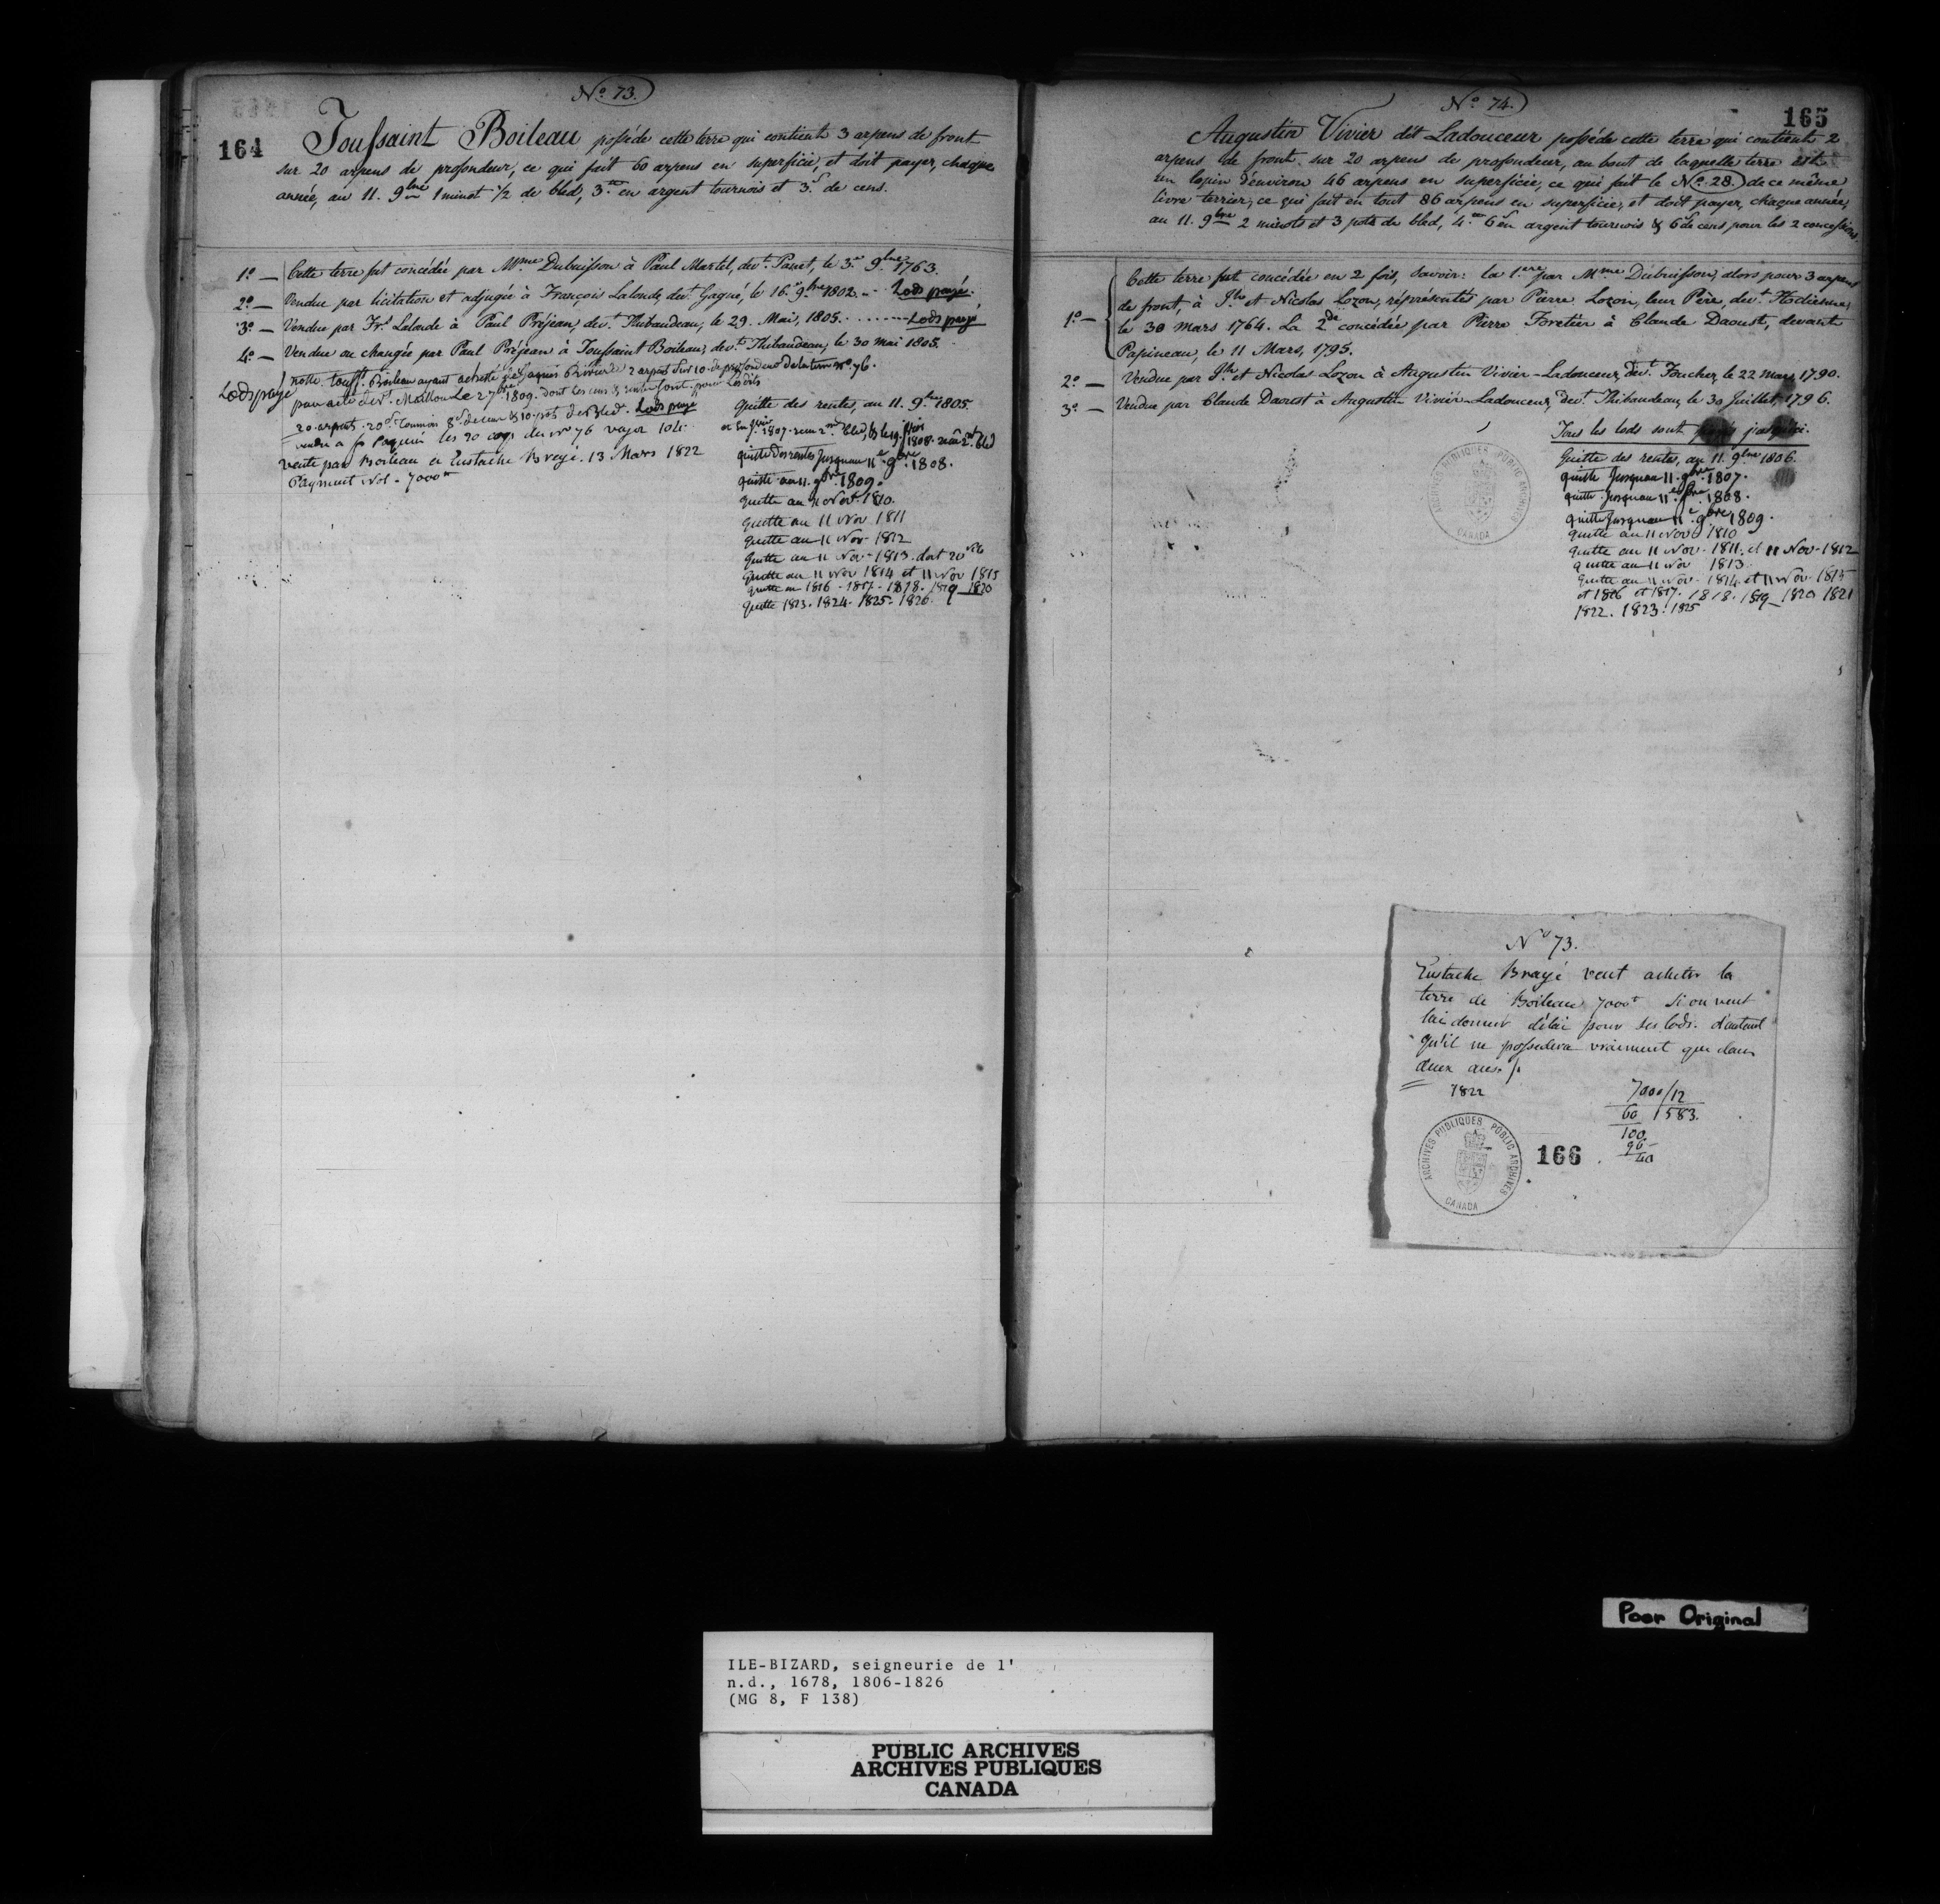 No. 73.
164
Toussaint Boileau posséde cette terre qui contient 3 arpens de front
sur 20 arpens de profondeur, ce qui fait 60 arpens en superficie, et doit payer, chaque
année, au 11. 9bre 1 minot 1/2 de bled, 3tt en argent tournois et 3s de cens.
1o — Cette terre fut concédée par Mme Dubuisson à Paul Martel, devt. Panet, le 3e 9bre 1763.
2o — Vendue par licitation et adjugée à François Lalonde, devt. Gagné, le 16e 9bre 1802 .. Lods payé.
3o — Vendue par Frs Lalonde à Paul Préjean, devt. Thibaudeau, le 29. Mai, 1805 ....... Lods payé
4o — Vendue ou changée par Paul Préjean à Toussaint Boileau, devt. Thibaudeau, le 30 mai 1805.
Lods payé
notte. Tousst. Boileau ayant acheté de Jaques Brivierde 2 arpents sur 10 de profondeur de la terre No. 76.
par acte devt. Maillou Le 27 bre 1809. dont les cens & rente sont pour Lesdits
20 arpents. 20s. Tournois 8d de cens & 10 pots de Bled. Lods payé
vendu a Paquin les 20 arps du No 76 vajor 104.
vente par Boileau a Eustache Brayé. 13 Mars 1822
Payment Nol - 7000tt
Quitte des rentes, au 11. 9bre 1805.
quitte des rentes Jusquau 11e 9bre 1808.
quitte au 11. 9bre 1809.
quitte au 11 Novr 1810.
quitte au 11 Nov 1811
quitte au 11 Nov 1812
quitte au 11 Nov 1813. doit 20
quitte au 11 Nov 1814 et 11 Nov 1815
quitte en 1816 - 1817 - 1818. 1819 1820
quitte 1823. 1824. 1825. 1826.
No. 74.
165
Augustin Vivier dit Ladouceur posséde cette terre qui contient 2
arpens de front sur 20 arpens de profondeur, au bout de laquelle terre est
un lopin d'environ 46 arpens en superficie, ce qui fait le No. 28. de ce même
livre terrier, ce qui fait en tout 86 arpens en superficie, et doit payer, chaque année,
au 11. 9bre 2 minots et 3 pots de bled, 4tt 6s en argent tournois & 6d de cens pour les 2 concessions.
1o — Cette terre fut concédée en 2 fois, savoir: la 1ere par Mme Dubuisson, alors pour 3 arpens
de front, à Jh et Nicolas Lozon, réprésentés par Pierre Lozon, leur Père, devt. Hodiesne,
le 30 Mars 1764. La 2de concédée par Pierre Foretier à Claude Daoust, devant
Papineau, le 11 Mars, 1795.
2o — Vendue par Jh et Nicolas Lozon à Augustin Vivier-Ladouceur, devt. Foucher, le 22 mars, 1790.
3o — Vendue par Claude Daoust à Augustin Vivier-Ladouceur, devt. Thibaudeau, le 30 Juillet, 1796.
Tous les lods sont payés jusqu'ici.
Quitte des rentes, au 11. 9bre 1806.
quitte Jusquau 11. 9bre 1807.
quitte Jusquau 11e 9bre 1808.
quitte Jusquau 11e 9bre 1809.
quitte au 11 Nov 1810
quitte au 11 Nov. 1811. et 11 Nov. 1812
quitte au 11 Nov 1813
quitte au 11 Nov. 1814 et 11 Nov. 1815
et 1816 et 1817. 1818. 1819 1820 1821
1822. 1823. 1825
ARCHIVES PUBLIQUES PUBLIC ARCHIVES
CANADA
No 73.
Eustache Brayé veut acheter la
terre de Boileau 7000tt si on veut
lui donner délai pour ses lods. d'autant
qu'il ne possedera vraiment que dans
deux ans.
1822
7000/12
60 583.
100
96
40
ARCHIVES PUBLIQUES PUBLIC ARCHIVES
CANADA
166
Poor Original
ILE-BIZARD, seigneurie de l'
n.d., 1678, 1806-1826
(MG 8, F 138)
PUBLIC ARCHIVES
ARCHIVES PUBLIQUES
CANADA